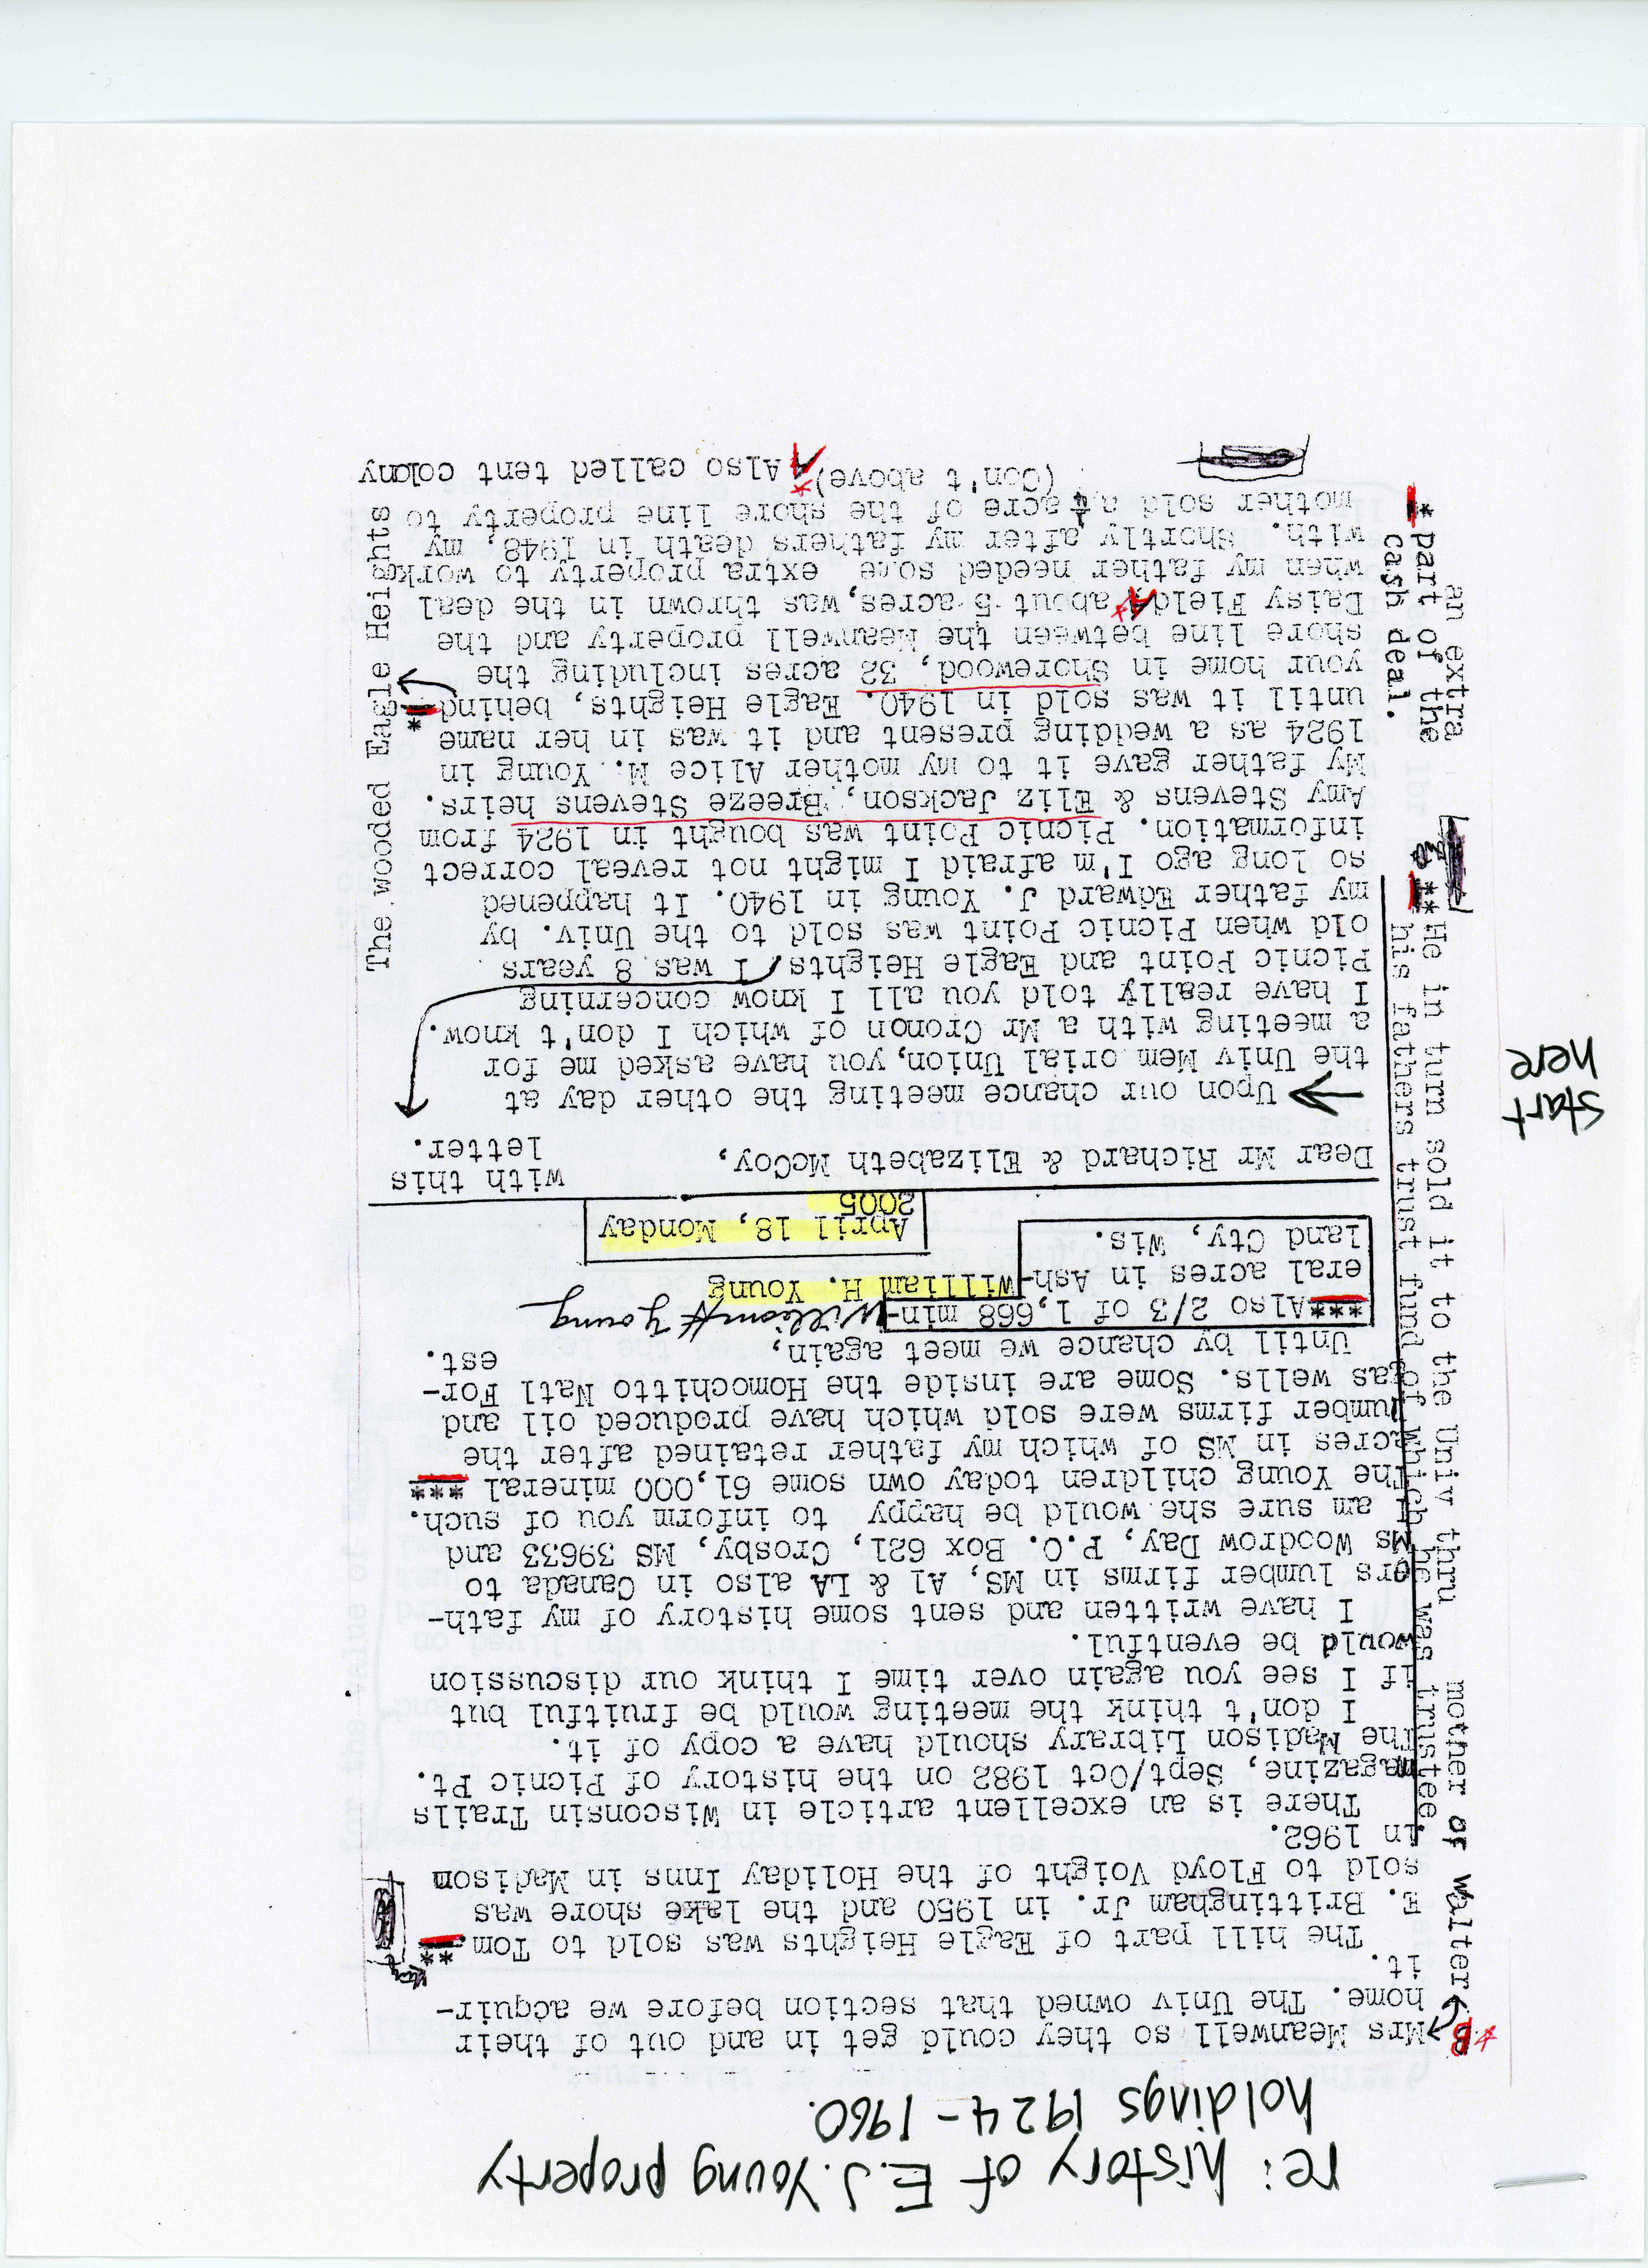 re: history of E.J. Young property
holdings 1924-1960.
Mrs Meanwell so they could get in and out of their
home. The Univ owned that section before we acquir-
it.
**
The hill part of Eagle Heights was sold to Tom
E. Brittingham Jr. in 1950 and the lake shore was
sold to Floyd Voight of the Holiday Inns in Madison
in 1962.
There is an excellent article in Wisconsin Trails
magazine, Sept/Oct 1982 on the history of Picnic Pt.
The Madison Library should have a copy of it.
I don't think the meeting would be fruitful but
if I see you again over time I think our discussion
would be eventful.
I have written and sent some history of my fath-
ers lumber firms in MS, Al & LA also in Canada to
Ms Woodrow Day, P.O. Box 621, Crosby, MS 39633 and
I am sure she would be happy to inform you of such.
The Young children today own some 61,000 mineral ***
acres in MS of which my father retained after the
lumber firms were sold which have produced oil and
gas wells. Some are inside the Homochitto Natl For-
est.
Until by chance we meet again,
***Also 2/3 of 1,668 min-
eral acres in Ash-
land Cty, Wis.
William H Young
William H. Young
April 18, Monday
2005
Dear Mr Richard & Elizabeth McCoy,
with this
letter.
Upon our chance meeting the other day at
the Univ Mem orial Union, you have asked me for
a meeting with a Mr Cronon of which I don't know.
I have really told you all I know concerning
Picnic Point and Eagle Heights I was 8 years
old when Picnic Point was sold to the Univ. by
my father Edward J. Young in 1940. It happened
so long ago I'm afraid I might not reveal correct
information. Picnic Point was bought in 1924 from
Amy Stevens & Eliz Jackson, Breeze Stevens heirs.
My father gave it to my mother Alice M. Young in
1924 as a wedding present and it was in her name
until it was sold in 1940. Eagle Heights, behind *
your home in Shorewood, 32 acres including the
shore line between the Meanwell property and the
Daisy Field * A about 5 acres, was thrown in the deal
when my father needed some extra property to work
with. Shortly after my fathers death in 1948, my
mother sold a acre of the shore line property to
(Con't above) * A Also called tent colony
start
here
The wooded Eagle Heights
* part of the
cash deal.
an extra
**He in turn sold it to the Univ thru
his fathers trust fund of which he was trustee.
* B mother of Walter